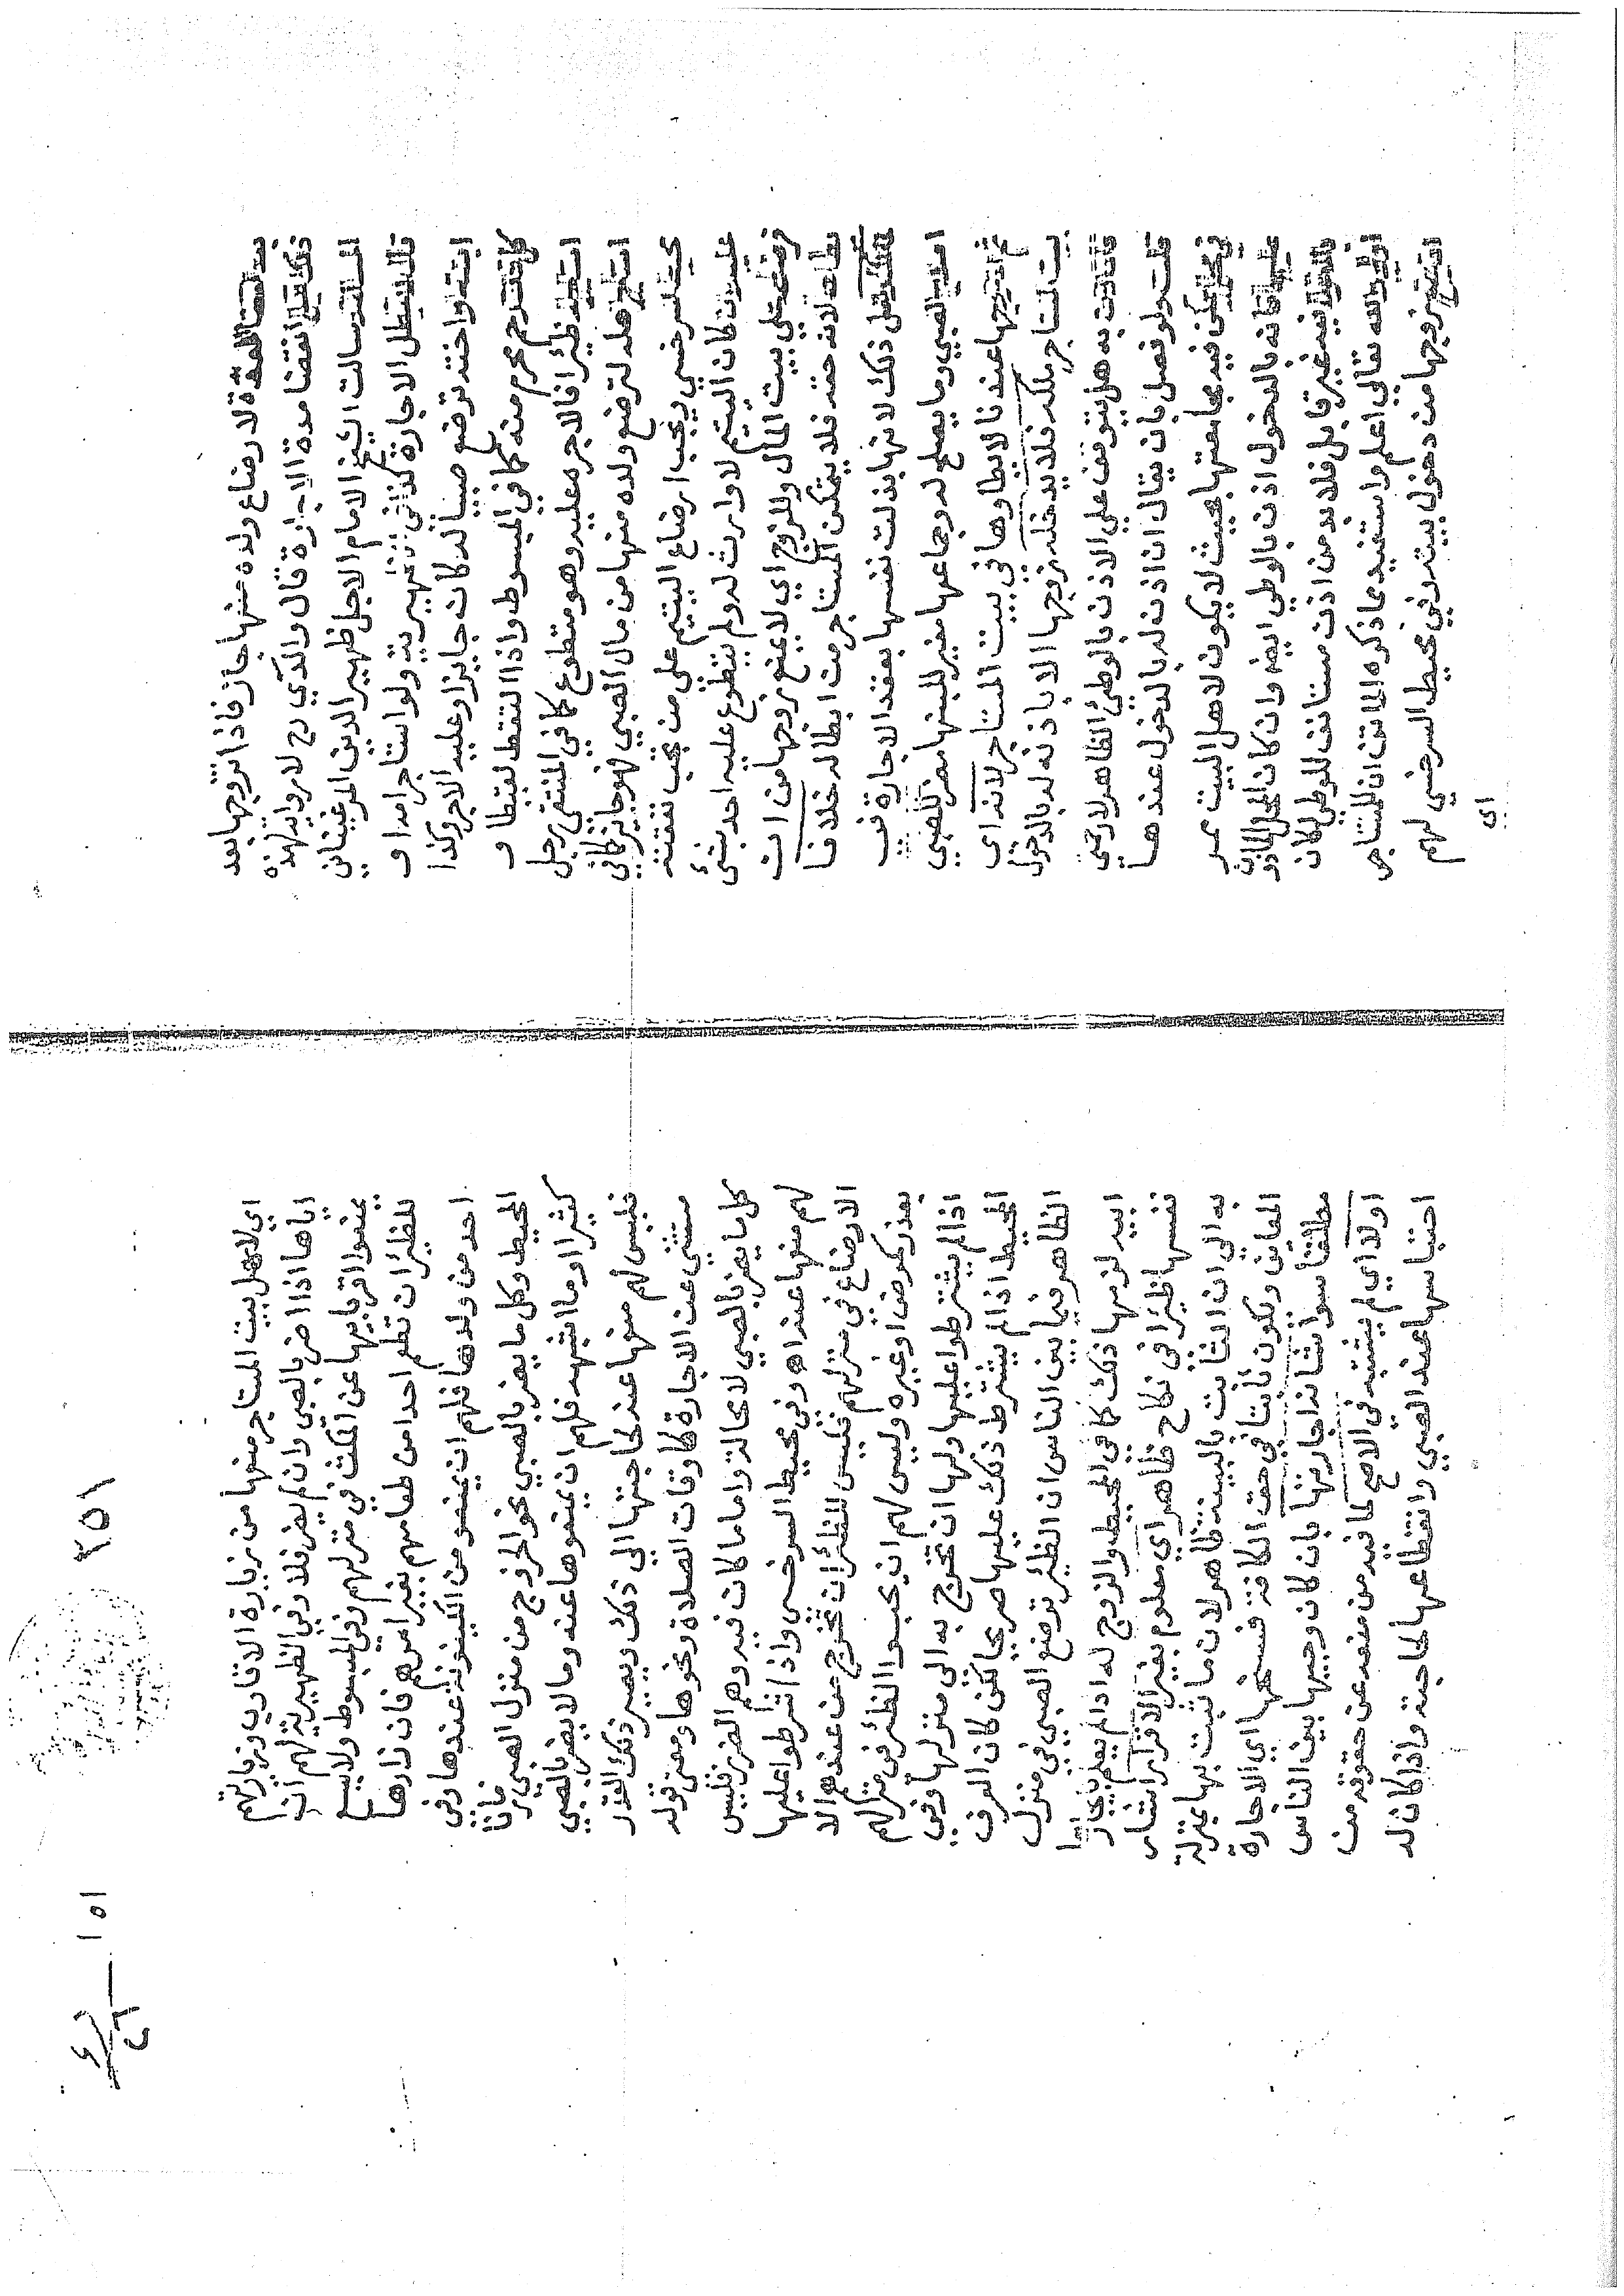 بعد انقضا العدة لارضاع ولده منها جاز فاذا تزوجها بعد
ذلك قبل انقضا مدة الاجارة قال والدي رح لا رواية لهذه
المسالة سالت الشيخ الامام الاجل ظهير الدين المرغيناني
قال لا تبطل الاجارة كذا في الظهيرية ولو استاجر امه او
ابنته او اخته ترضع صبيا له كان جايزا وعليه الاجر وكذا
كل ذات رحم محرم منه كما في المبسوط واذا التقط لقيطا و
استاجر ظئرا فالاجر عليه وهو متطوع كما في المنتقى رجل
استاجر اهله لترضع ولده منها من مال الصبي فهو جايز كما في
محيط السرخسي ويجب ارضاع اليتيم على من يجب نفقته
عليه وان كان اليتيم لا وارث له ولم يتطوع عليه احد بشي
فرضاعه على بيت المال وللزوج اي لا يمنع زوجها من ان
يطاها لانه حقه فلا يتمكن المستاجر من ابطاله خلافا
لمالك رح ذلك لانها بذلت نفسها بعقد الاجارة في
امر الصبي وما يصلح له وجماعها مضر للبنها مضر للصبي
ثم زوجها عندنا لا يطاوها في بيت المستاجر لانه اي
بيت المستاجر ملكه فلا يدخله زوجها الا باذنه له بالدخول
فان اذن به هل يتوقف علي الاذن بالوطي الظاهر لا حتي
قلت ولو فصل بان يقال ان اذن له بالدخول عندها
في محل يمكن فيه مجامعتها بحيث لا يكون لاهل البيت ممر
عليه كانه بالدخول اذن بالوطي ايضا وان كان المحل الماذون
بالدخول فيه غير قابل فلا بد من اذن مستانف للوطي لكان
اوفق والله تعالى اعلم واستفيد مما ذكره الماتن ان للمستاجر
ان يمنع زوجها من دخول بيته وفي محيط السرخسي لهم
اي
اي لاهل بيت المستاجر منعها من زيارة الاقارب وزيارتهم
اياها اذا اضر بالصبي وان لم يضر فلا وفي الظهيرية لهم ان
يمنعوا اقرباءها عن المكث في منزلهم وفي المبسوط ولا يسع
للظئر ان تطعم احدا من طعامهم بغير امرهم فان زارها
احد من ولدها فلهم ان يمنعوه من الكينونة عندها وفي
المحيط وكل ما يضر بالصبي نحو الخروج من منزل الصبي زمانا
كثيرا وما اشبهه فلهم ان يمنعوها عنه وما لا يضر بالصبي
فليس لهم منعها عنه لحاجتها الي ذلك ويصير ذلك القدر
مستثني عن الاجارة كاوقات الصلاة ونحوها ومعني قوله
كل ما يضر بالصبي لا محالة واما ما كان فيه وهم الضرر فليس
لهم منعها عنه اه وفي محيط السرخسي واذا شرطوا عليها
الارضاع في منزلهم فليس للظئر ان تخرج من عندهم الا
بعذر كمرض او غيره وليس لهم ان يحبسوا الظئر في منزلهم
اذا لم يشترطوا عليها ولها ان تخرج به الى منزلها وفي
المحيط اذا لم يشترط ذلك عليها صريحا لكن كان العرف
الظاهر فيما بين الناس ان الظئر ترضع الصبي في منزل
ابيه لزمها ذلك كما في المحيط والزوج له اذا لم يعلم بايجارها
نفسها ظئرا في نكاح ظاهر اي معلوم بغير الاقرار اشار
به الي ان الثابت بالبينة ظاهر لان ما ثبت بها بمنزلة
المعاين ويكون ثابتا في حق الكافة فسخها اي الاجارة
مطلقا سوا شانه اجارتها بان كان وجيها بين الناس
اولا اي لم يشنه في الاصح لما فيه من منعه عن حقوقه من
احتباسها عند الصبي وانقطاعها لحاجته واذا كان له
٣٥١
١٥١